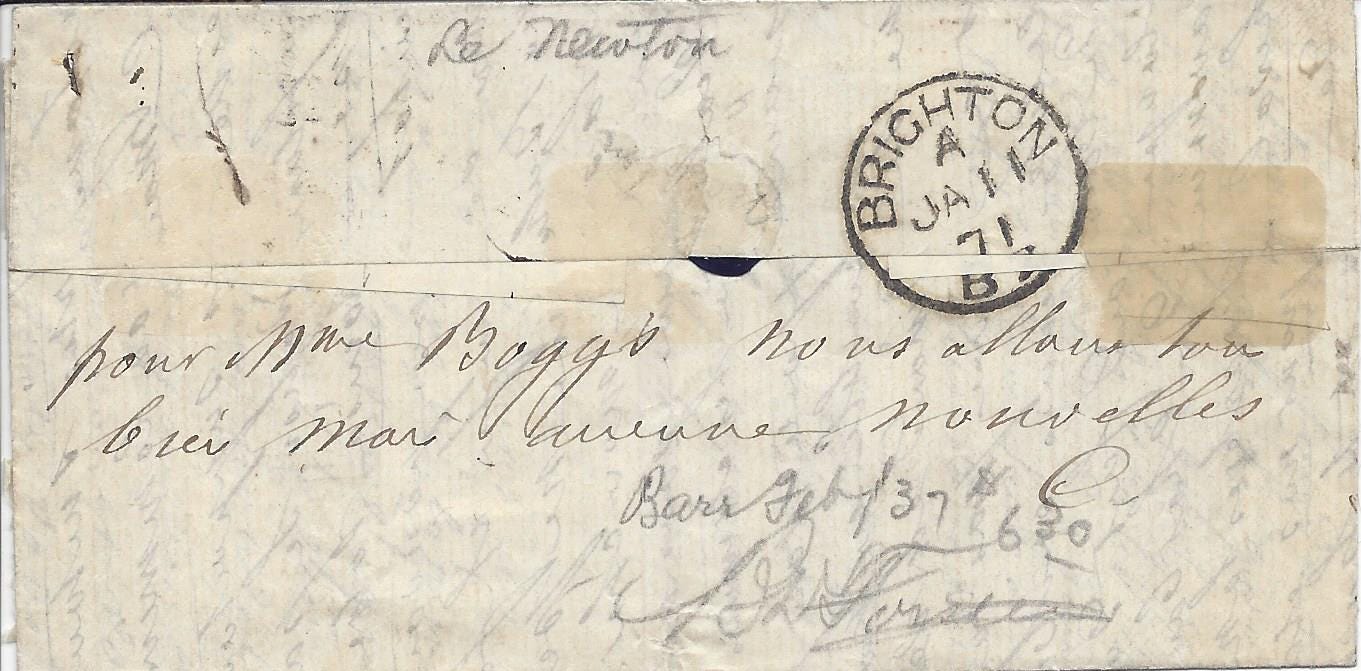 Le Newton
BRIGHTON
A
JA 11
71
B
pour Mme Boggs. nous allons tous
bien mais aucune nouvelles
C
Barr Feb/37
630